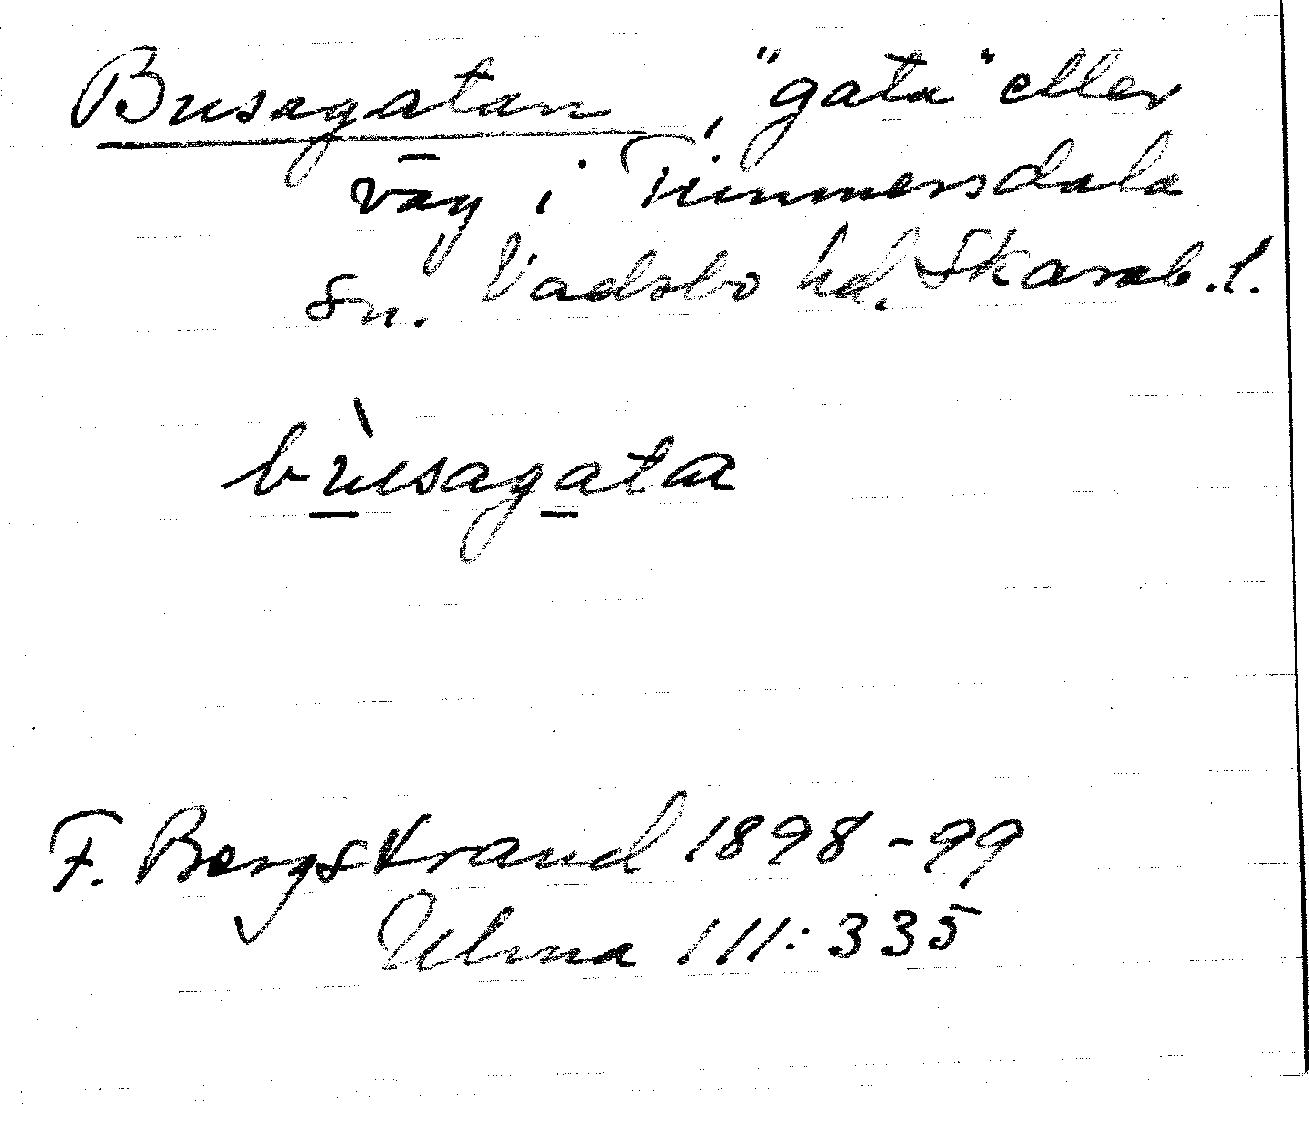 Busagatan, "gata" eller
väg i Timmersdala
sn. Vadsbo hd. Skarab.l.
bùsagata
F. Bergstrand 1898-99
Ulma 111:335